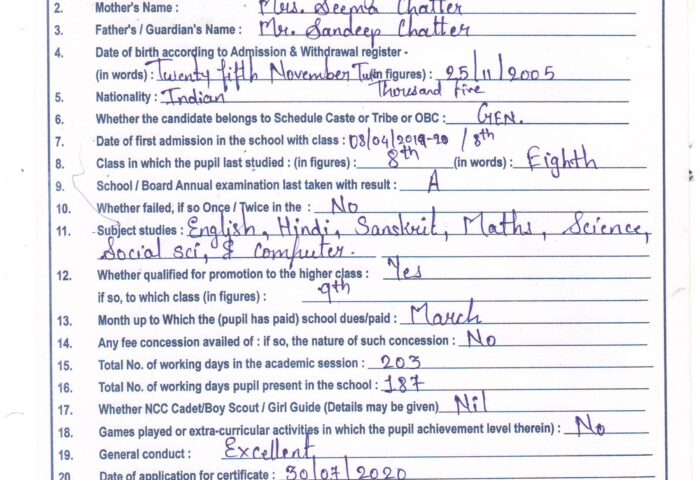 2. Mother's Name : Mrs. Seema Chatter
3. Father's / Guardian's Name : Mr. Sandeep Chatter
4. Date of birth according to Admission & Withdrawal register -
(in words) : Twenty fifth November Two (in figures) : 25/11/2005
Thousand five
5. Nationality : Indian
6. Whether the candidate belongs to Schedule Caste or Tribe or OBC : GEN.
7. Date of first admission in the school with class : 08/04/2019-20 / 8th
8. Class in which the pupil last studied : (in figures) : 8th (in words) : Eighth
9. School / Board Annual examination last taken with result : A
10. Whether failed, if so Once / Twice in the : No
11. Subject studies : English, Hindi, Sanskrit, Maths, Science,
Social sci, & Computer.
12. Whether qualified for promotion to the higher class : Yes
if so, to which class (in figures) : 9th
13. Month up to Which the (pupil has paid) school dues/paid : March
14. Any fee concession availed of : if so, the nature of such concession : No
15. Total No. of working days in the academic session : 203
16. Total No. of working days pupil present in the school : 187
17. Whether NCC Cadet/Boy Scout / Girl Guide (Details may be given) Nil
18. Games played or extra-curricular activities in which the pupil achievement level therein) : No
19. General conduct : Excellent
20. Date of application for certificate : 30/07/2020